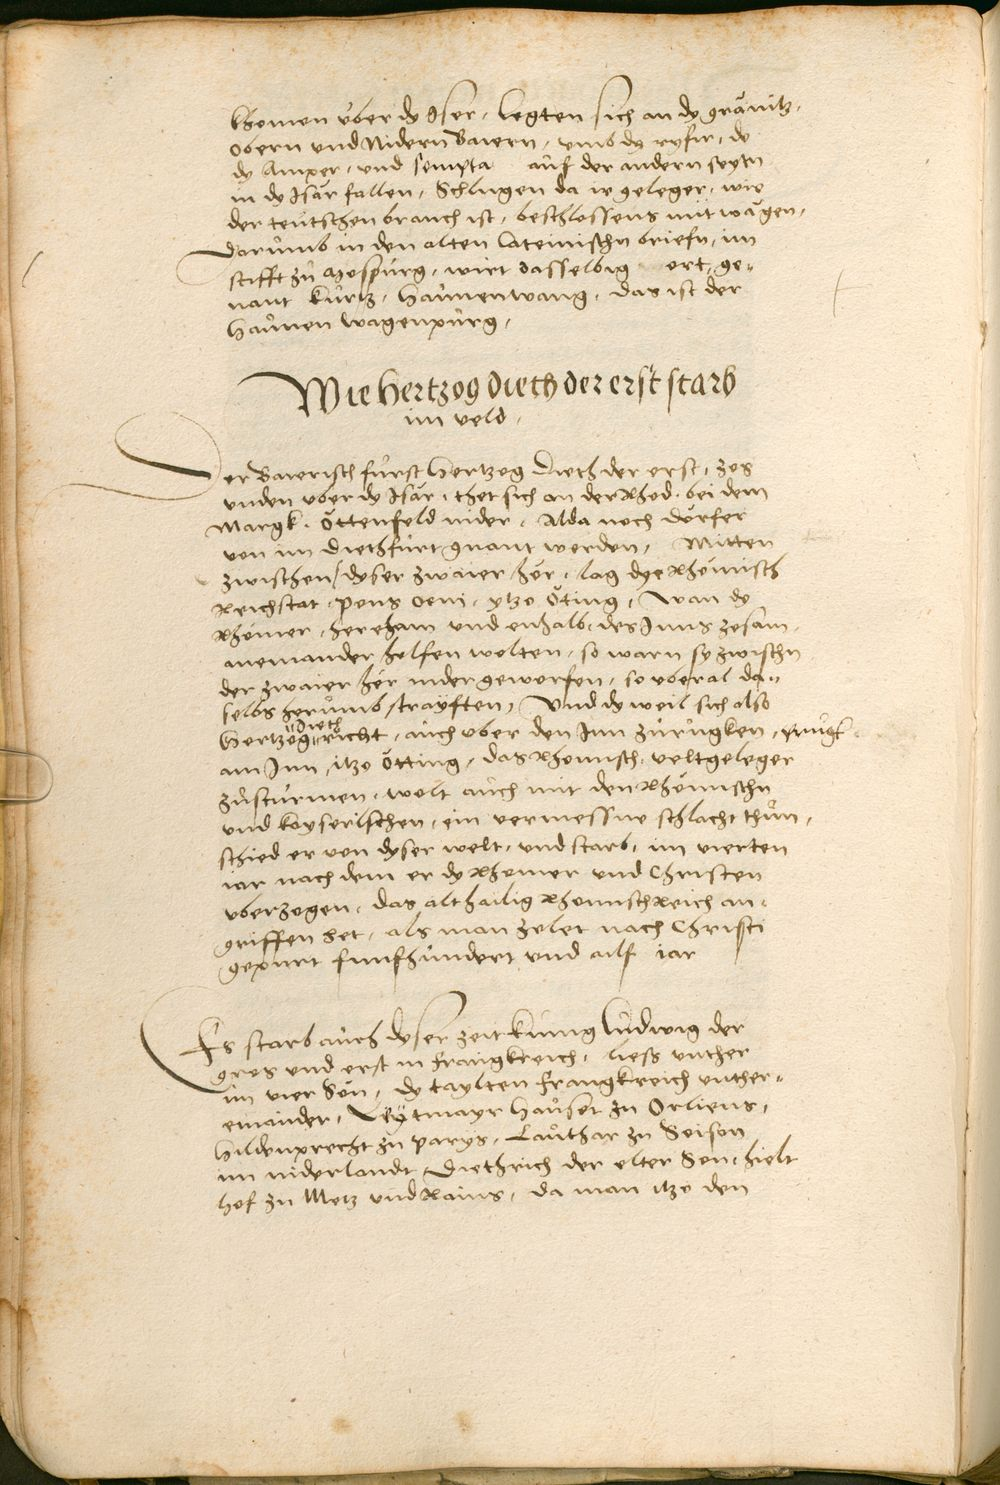 khomen uber dy Iser, legten sich an dy gränitz,
Obern und Nidern Baiern, umb dy refir, do
dy Amper, und Sempta auf der andern seytn
in dy Isar fallen, Schlugen da ir geleger, wie
der teutschen brauch ist, beschlossens mit wägen,
Darumb in den alten Lateinischn briefn, im
stifft zu Mospurg, wirt dasselbig ort, ge-
nant kurtz, Haunenwang, das ist der
Haunen wagenpurg,
Wie hertzog dieth der erst starb
im veld,
Der Bairisch furst Hertzog Dieth der erst, zog
unden uber dy Isar, thet sich an der Rhod, bei dem
Margk, Öttenfeld nider, Alda noch dörfer
von im Diethfurt gnant werden, Mitten
zwischen dyser zwaier her, lag dye Rhömisch
Reichstat, Pons Oeni, ytzo Öting, Wan dy
Rhömer, herchain und enhalb, des Inns zesam,
aneinander helfen wolten, so warn sy zwischn
der zwaier her nider geworfen, so uberal da-
selbs herumb strayften, Und dy weil sich also
Dieth
Hertzog richt, auch uber den Inn zurugken, prugk
am Inn, itzo Ötting, das Rhomisch, veltgeleger
zusturmen, wolt auch mit den Rhömischn
und kayserischen, ein vermessne schlacht thun,
schied er von dyser welt, und starb, im vierten
iar nach dem er dy Rhomer und Christen
uberzogen, das althailig Rhomisch Reich an-
griffen het, als man zelet nach Christi
gepurt funfhundert und ailf iar
Es starb auch dyser zeit kunig Ludwig der
gros und erst in Frangkreich, liess unther
im vier Sön, dy taylten Frangkreich unther-
einander, Leytmayr Hauset zu Orliens,
Hildenprecht zu Parys, Lauthar zu Soison
im niderlandt Diethrich der elter Son, hielt
hof zu Metz und Rains, da man itzo den